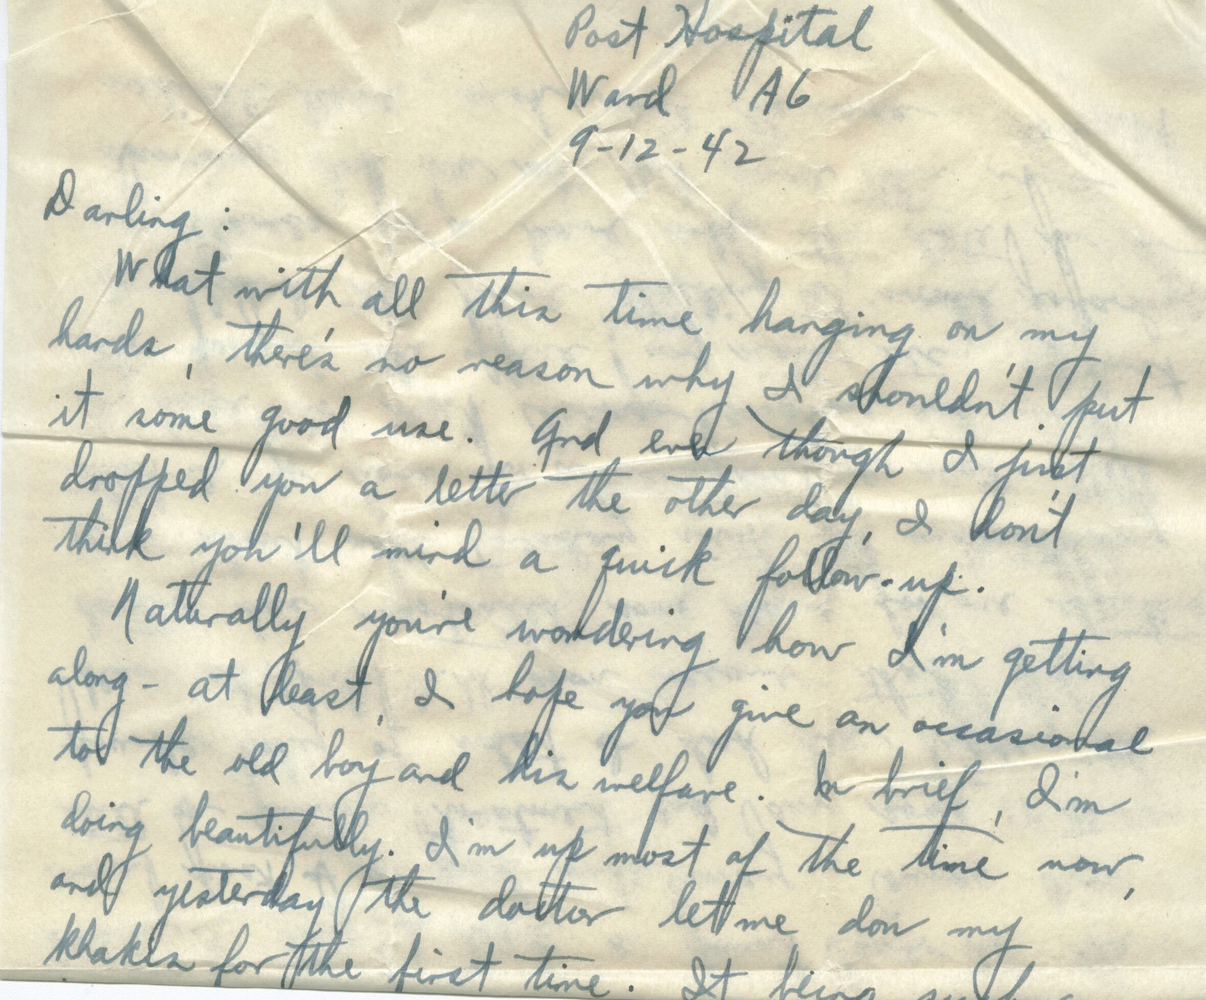 Post Hospital
Ward A6
9-12-42
Darling:
What with all this time hanging on my
hands, there's no reason why I shouldn't put
it some good use. And even though I just
dropped you a letter the other day, I don't
think you'll mind a quick follow-up.
Naturally you're wondering how I'm getting
along - at least, I hope you give an occasional
to the old boy and his welfare. In brief, I'm
doing beautifully. I'm up most of the time now,
and yesterday the doctor let me don my
khakis for the first time. It being such a